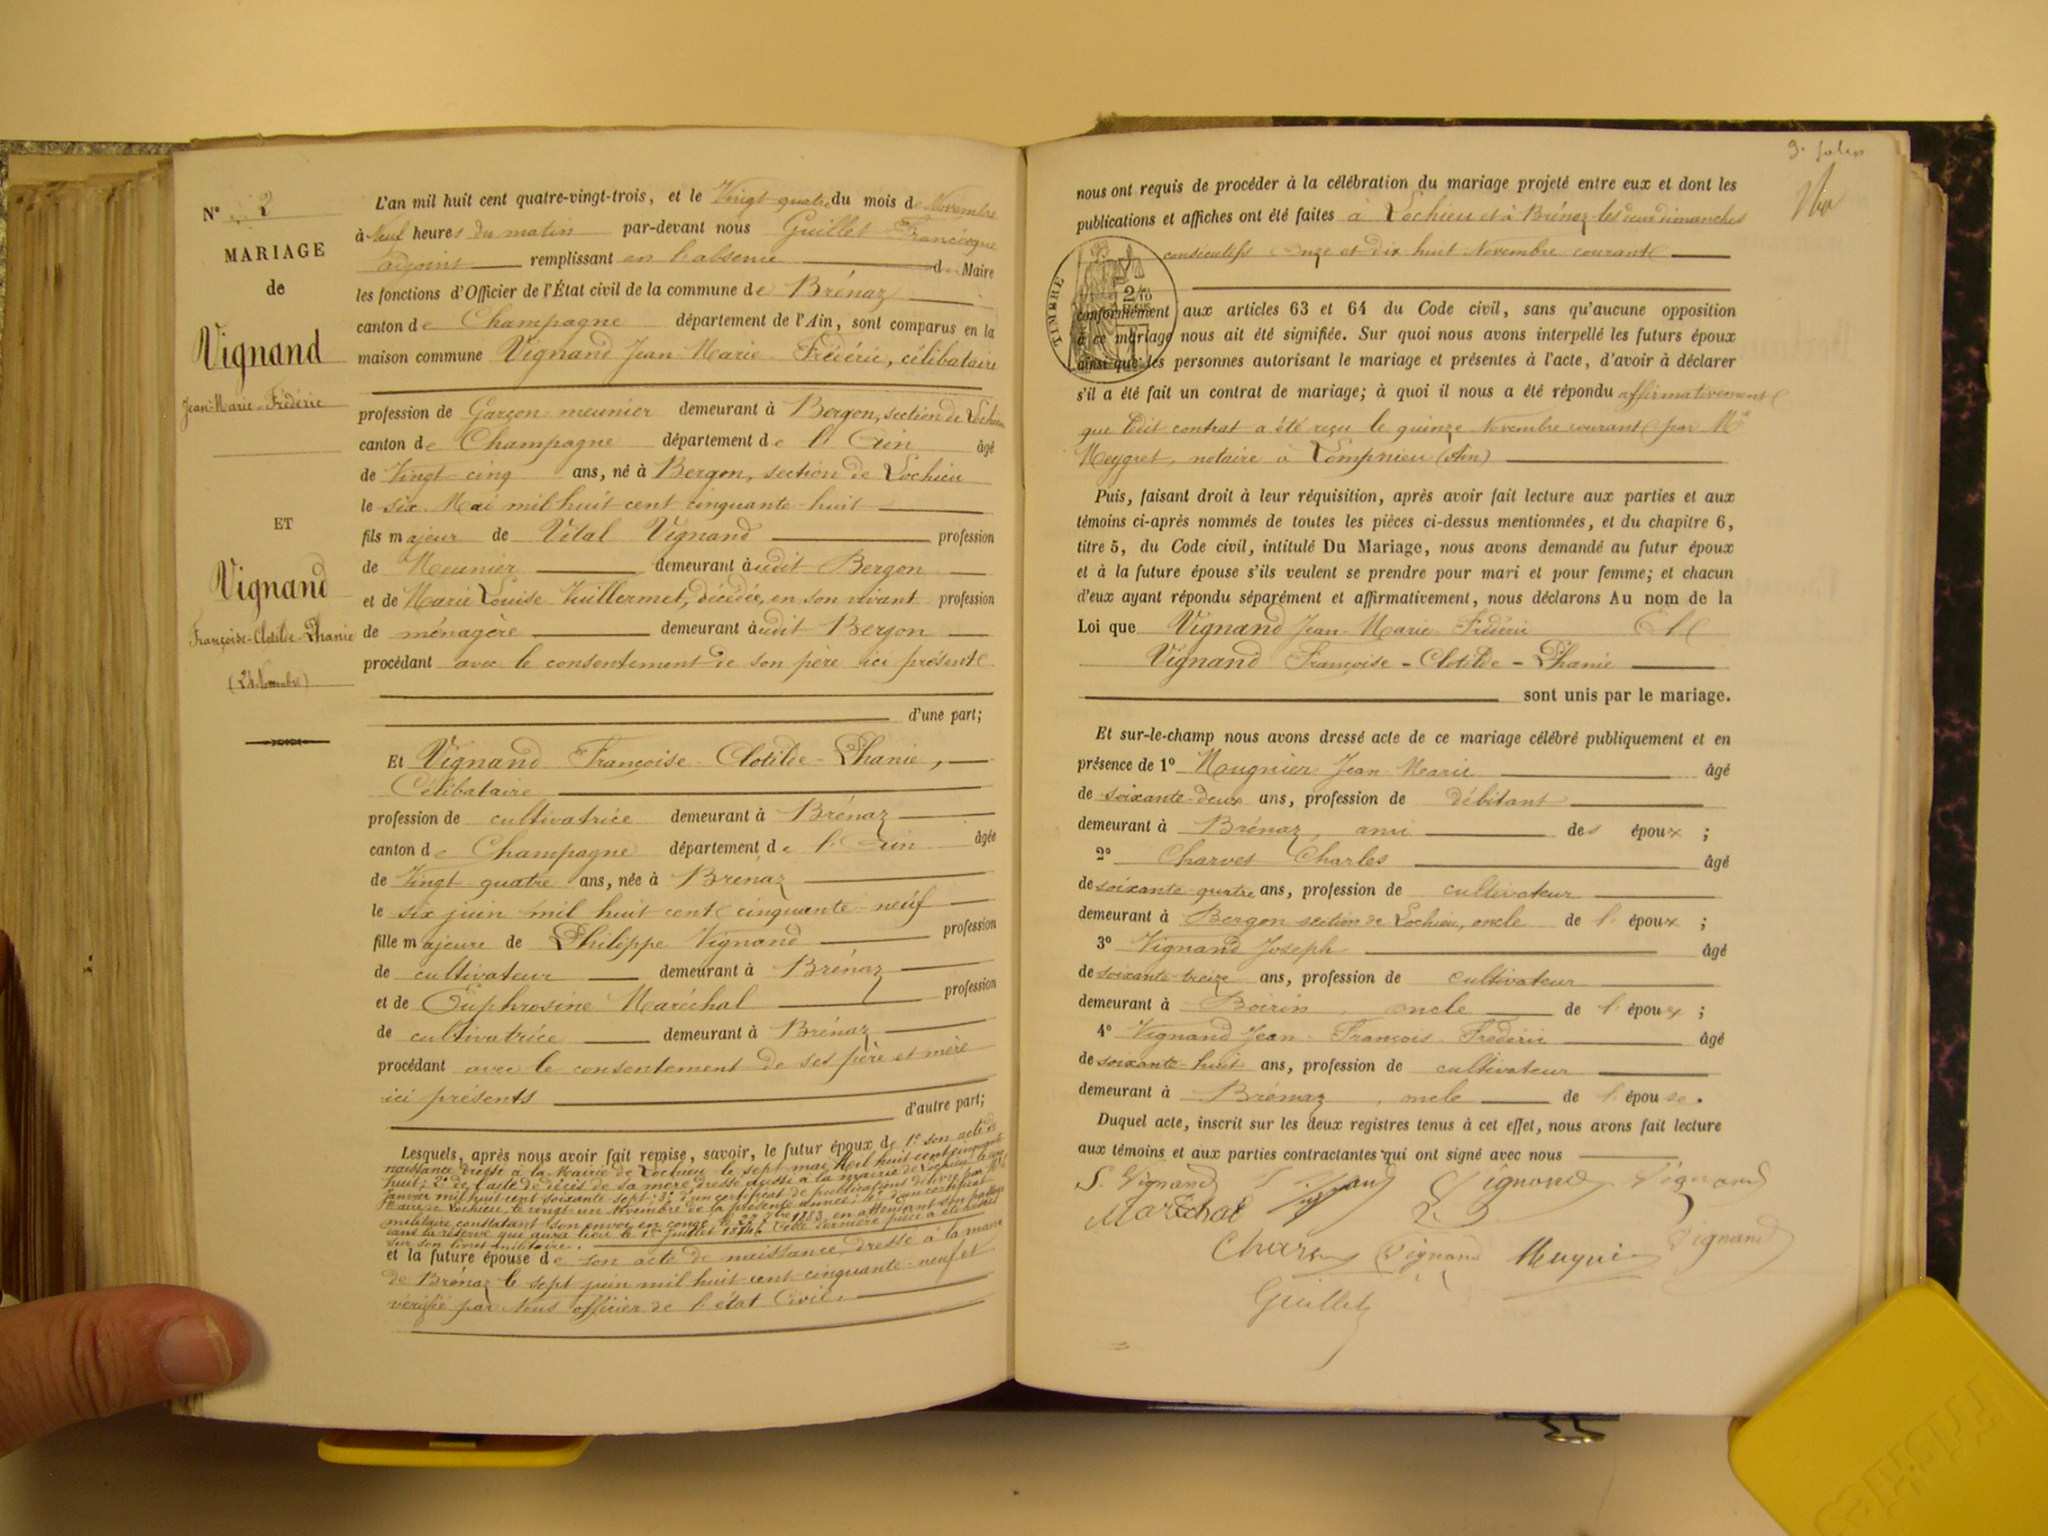 N° 2
MARIAGE
de
Vignand
Jean-Marie-Frédéric
ET
Vignand
Françoise-Clotilde-Phanie
(24 Novembre)
L'an mil huit cent quatre-vingt-trois, et le Vingt quatre du mois de Novembre
à Neuf heures du matin par-devant nous Guillet Francisque
adjoint remplissant en l'absence du Maire
les fonctions d'Officier de l'État civil de la commune de Brénaz
canton de Champagne département de l'Ain, sont comparus en la
maison commune Vignand Jean-Marie-Frédéric, célibataire
profession de Garçon meunier demeurant à Bergon, section de Lochieu
canton de Champagne département de l'Ain âgé
de Vingt cinq ans, né à Bergon, section de Lochieu
le six Mai mil huit cent cinquante huit
fils majeur de Vital Vignand profession
de Meunier demeurant àudit Bergon
et de Marie Louise Guillermet, décédée, en son vivant profession
de ménagère demeurant àudit Bergon
procédant avec le consentement de son père ici présent
d'une part;
Et Vignand Françoise-Clotilde-Phanie,
Célibataire
profession de cultivatrice demeurant à Brénaz
canton de Champagne département de l'Ain âgée
de Vingt quatre ans, née à Brénaz
le six juin mil huit cent cinquante-neuf
fille majeure de Philippe Vignand profession
de cultivateur demeurant à Brénaz
et de Euphrosine Maréchal profession
de cultivatrice demeurant à Brénaz
procédant avec le consentement de ses père et mère
ici présents
d'autre part;
Lesquels, après nous avoir fait remise, savoir, le futur époux de 1° son acte de
naissance dressé à la Mairie de Lochieu le sept mai Mil huit cent cinquante
huit; 2° de l'acte de décès de sa mère dressé aussi à la mairie de Lochieu le
janvier mil huit cent soixante sept; 3° d'un certificat de publications délivré par Mr le
Maire de Lochieu, le vingt-un Novembre de la présente année; 4° d'un certificat
militaire constatant son envoi en congé le 22 7bre 1883, en attendant son passage
dans la réserve qui aura lieu le 1er Juillet 1884. Cette dernière pièce a été
sur son livret militaire.
et la future épouse de son acte de naissance, dressé à la mairie
de Brénaz le sept juin mil huit cent cinquante-neuf et
vérifié par Nous officier de l'état Civil.
9e folio
nous ont requis de procéder à la célébration du mariage projeté entre eux et dont les
publications et affiches ont été faites à Lochieu et à Brénaz les deux dimanches
consécutifs onze et dix huit Novembre courant
TIMBRE
conformément aux articles 63 et 64 du Code civil, sans qu'aucune opposition
à ce mariage nous ait été signifiée. Sur quoi nous avons interpellé les futurs époux
ainsi que les personnes autorisant le mariage et présentes à l'acte, d'avoir à déclarer
s'il a été fait un contrat de mariage; à quoi il nous a été répondu affirmativement
que ledit contrat a été reçu le quinze Novembre courant par Me
Meygret, notaire à Lompnieu (Ain)
Puis, faisant droit à leur réquisition, après avoir fait lecture aux parties et aux
témoins ci-après nommés de toutes les pièces ci-dessus mentionnées, et du chapitre 6,
titre 5, du Code civil, intitulé Du Mariage, nous avons demandé au futur époux
et à la future épouse s'ils veulent se prendre pour mari et pour femme; et chacun
d'eux ayant répondu séparément et affirmativement, nous déclarons Au nom de la
Loi que Vignand Jean-Marie-Frédéric Et
Vignand Françoise-Clotilde-Phanie
sont unis par le mariage.
Et sur-le-champ nous avons dressé acte de ce mariage célébré publiquement et en
présence de 1° Mugnier Jean Marie âgé
de soixante-deux ans, profession de débitant
demeurant à Brénaz, ami des époux;
2° Charvet Charles âgé
de soixante-quatre ans, profession de cultivateur
demeurant à Bergon section de Lochieu, oncle de l'époux;
3° Vignand Joseph âgé
de soixante-treize ans, profession de cultivateur
demeurant à Boirin, oncle de l'époux;
4° Vignand Jean-François-Frédéric âgé
de soixante-huit ans, profession de cultivateur
demeurant à Brénaz, oncle de l'épouse.
Duquel acte, inscrit sur les deux registres tenus à cet effet, nous avons fait lecture
aux témoins et aux parties contractantes qui ont signé avec nous
S. Vignand Vignand Vignand Vignand
Maréchal
Charvet Vignand Mugnier Vignand
Guillet